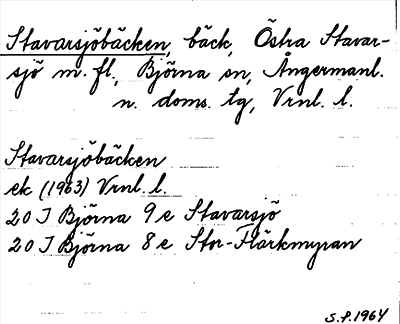 Stavarsjöbäcken, bäck, Östra Stavar-
sjö m. fl., Björna sn, Ångermanl.
n. doms. tg, Vrnl. l.
Stavarsjöbäcken
ek (1963) Vrnl. l.
20 I Björna 9 e Stavarsjö
20 I Björna 8 e Stor-Flärkmyran
S.P. 1964